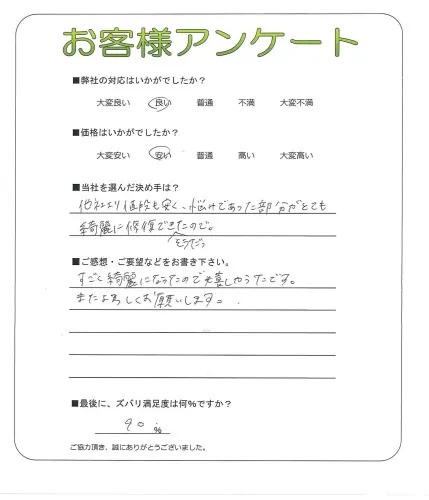 お客様アンケート
■弊社の対応はいかがでしたか？
大変良い 良い 普通 不満 大変不満
■価格はいかがでしたか？
大変安い 安い 普通 高い 大変高い
■当社を選んだ決め手は？
他社より値段も安く、悩みであった部分がとても
綺麗に修復できたので。
そうだっ
■ご感想・ご要望などをお書き下さい。
すごく綺麗になったので嬉しかったです。
またよろしくお願いします。
■最後に、ズバリ満足度は何%ですか？
90 %
ご協力頂き、誠にありがとうございました。